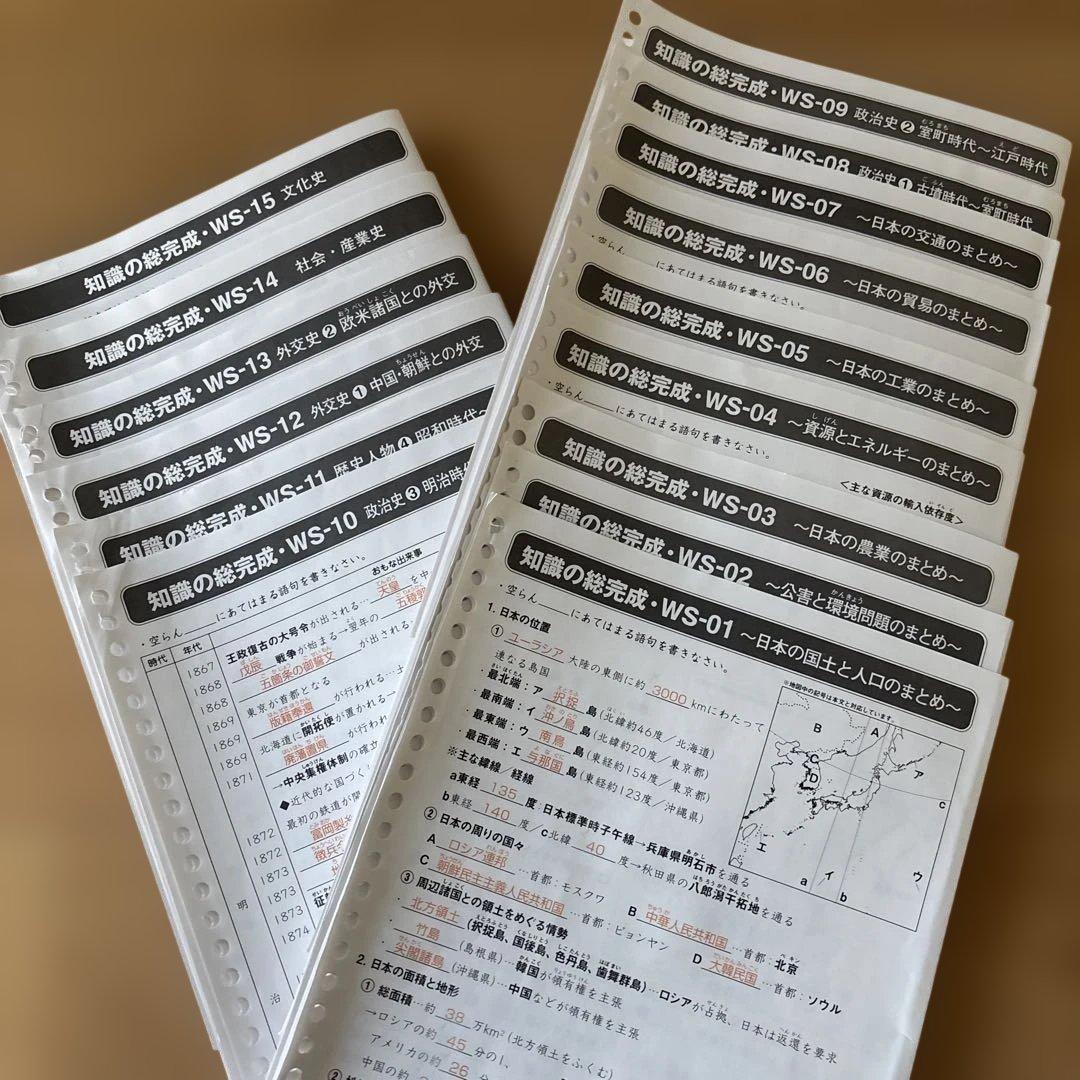 知識の総完成・WS-15 文化史
知識の総完成・WS-14 社会・産業史
知識の総完成・WS-13 外交史❷欧米諸国との外交
知識の総完成・WS-12 外交史❶中国・朝鮮との外交
知識の総完成・WS-11 歴史人物❹昭和時代~
知識の総完成・WS-10 政治史❸明治時
・空らん____にあてはまる語句を書きなさい。
時代 年代 おもな出来事
1867 王政復古の大号令が出される…天皇を中
1868 戊辰戦争が始まる→翌年の五稜郭
1868 五箇条の御誓文が出される
東京が首都となる
1869 版籍奉還が行われる…土
1869 北海道に開拓使が置かれる
1871 廃藩置県が行われ
→中央集権体制の確立
◆近代的な国づく
1872 最初の鉄道が開
1872 富岡製糸
1873 徴兵
1873
1873
1874
明
治
知識の総完成・WS-09 政治史❷室町時代~江戸時代
知識の総完成・WS-08 政治史❶古墳時代~室町時代
知識の総完成・WS-07 ~日本の交通のまとめ~
知識の総完成・WS-06 ~日本の貿易のまとめ~
・空らん____にあてはまる語句を書きなさい。
知識の総完成・WS-05 ~日本の工業のまとめ~
知識の総完成・WS-04 ~資源とエネルギーのまとめ~
・空らん____にあてはまる語句を書きなさい。
<主な資源の輸入依存度>
知識の総完成・WS-03 ~日本の農業のまとめ~
知識の総完成・WS-02 ~公害と環境問題のまとめ~
知識の総完成・WS-01 ~日本の国土と人口のまとめ~
・空らん____にあてはまる語句を書きなさい。
※地図中の記号は本文と対応しています。
1. 日本の位置
① ユーラシア大陸の東側に約3000kmにわたって
連なる島国
最北端:ア 択捉島(北緯約46度/北海道)
最南端:イ 沖ノ鳥島(北緯約20度/東京都)
最東端:ウ 南鳥島(東経約154度/東京都)
最西端:エ 与那国島(東経約123度/沖縄県)
※主な緯線/経線
a東経135度:日本標準時子午線→兵庫県明石市を通る
b東経140度/c北緯40度→秋田県の八郎潟干拓地を通る
② 日本の周りの国々
A ロシア連邦…首都:モスクワ B 中華人民共和国…首都:北京
C 朝鮮民主主義人民共和国…首都:ピョンヤン D 大韓民国…首都:ソウル
③ 周辺諸国との領土をめぐる情勢
・北方領土(択捉島、国後島、色丹島、歯舞群島)…ロシアが占拠、日本は返還を要求
・竹島(島根県)…韓国が領有権を主張
・尖閣諸島(沖縄県)…中国などが領有権を主張
2. 日本の面積と地形
① 総面積…約38万km²(北方領土をふくむ)
→ロシアの約45分の1、
アメリカの約26分
中国の約
②
B
A
C
D
ア
c
エ
a
イ
b